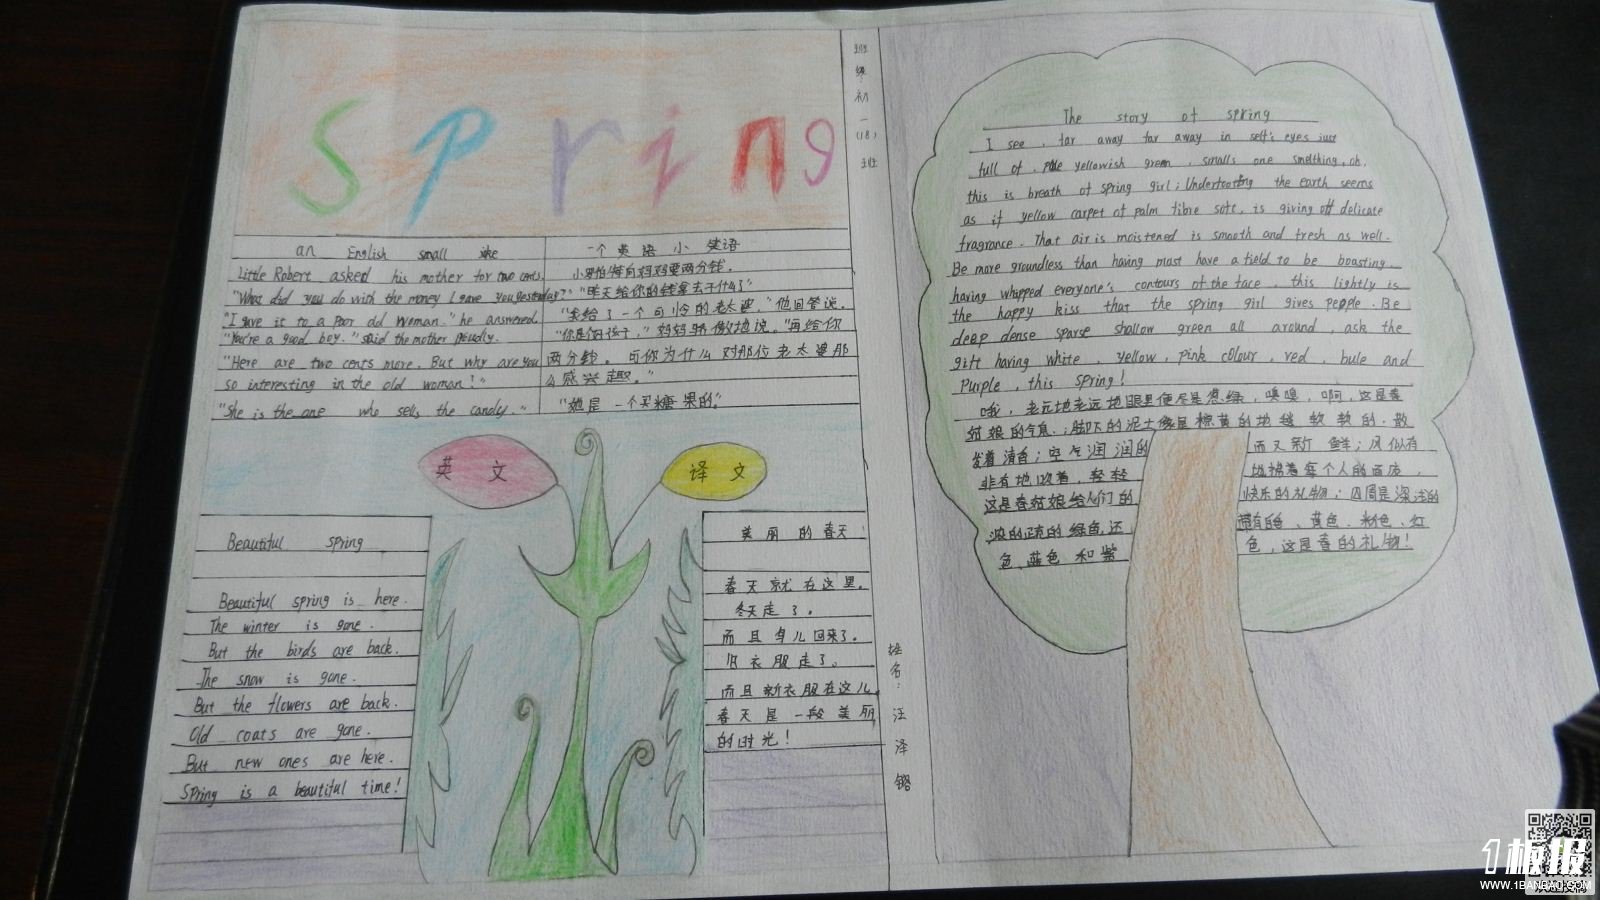 spring
an English small joke
Little Robert asked his mother for two cents.
"What did you do with the money I gave you yesterday?"
"I gave it to a poor old woman." he answered.
"You're a good boy." said the mother proudly.
"Here are two cents more. But why are you
so interesting in the old woman!"
"She is the one who sells the candy."
一个英语小笑话
小罗伯特向妈妈要两分钱。
"昨天给你的钱拿去干什么了"
"我给了一个可怜的老太婆，"他回答说。
"你是个好孩子，"妈妈骄傲地说。"再给你
两分钱。可你为什么对那位老太婆那
么感兴趣。"
"她是一个买糖果的"
英文
译文
Beautiful spring
Beautiful spring is here.
The winter is gone.
But the birds are back.
The snow is gone.
But the flowers are back.
Old coats are gone.
But new ones are here.
Spring is a beautiful time!
美丽的春天！
春天就在这里。
冬天走了。
而且鸟儿回来了。
旧衣服走了。
而且新衣服在这儿
春天是一段美丽
的时光！
班级：初一(18)班
姓名：汪泽锴
The story of spring
I see , far away far away in self's eyes just
full of . pale yellowish green , smalls one smelthing, oh,
this is breath of spring girl; Underfooting the earth seems
as if yellow carpet of palm fibre soft, is giving off delicate
fragrance. That air is moistened is smooth and fresh as well.
Be more groundless than having must have a field to be boasting.
having whipped everyone's contours of the face , this lightly is
the happy kiss that the spring girl gives people. Be
deep dense sparse shallow green all around , ask the
gift having white , yellow , pink colour , red , bule and
Purple , this spring!
哦，老远地老远地眼里便尽是悠绿，嗅嗅，啊，这是春
姑娘的气息.；脚下的泥土像是棕黄的地毯软软的，散
发着清香；空气润润的而又新鲜；风似有
非有地吹着，轻轻地拂着每个人的面庞，
这是春姑娘给人们的快乐的礼物；四周是深浅的
浓的疏的绿色,还带有白色、黄色、粉色、红
色、蓝色和紫色，这是春的礼物！
1板报
WWW.1BANBAO.COM
欢迎投稿